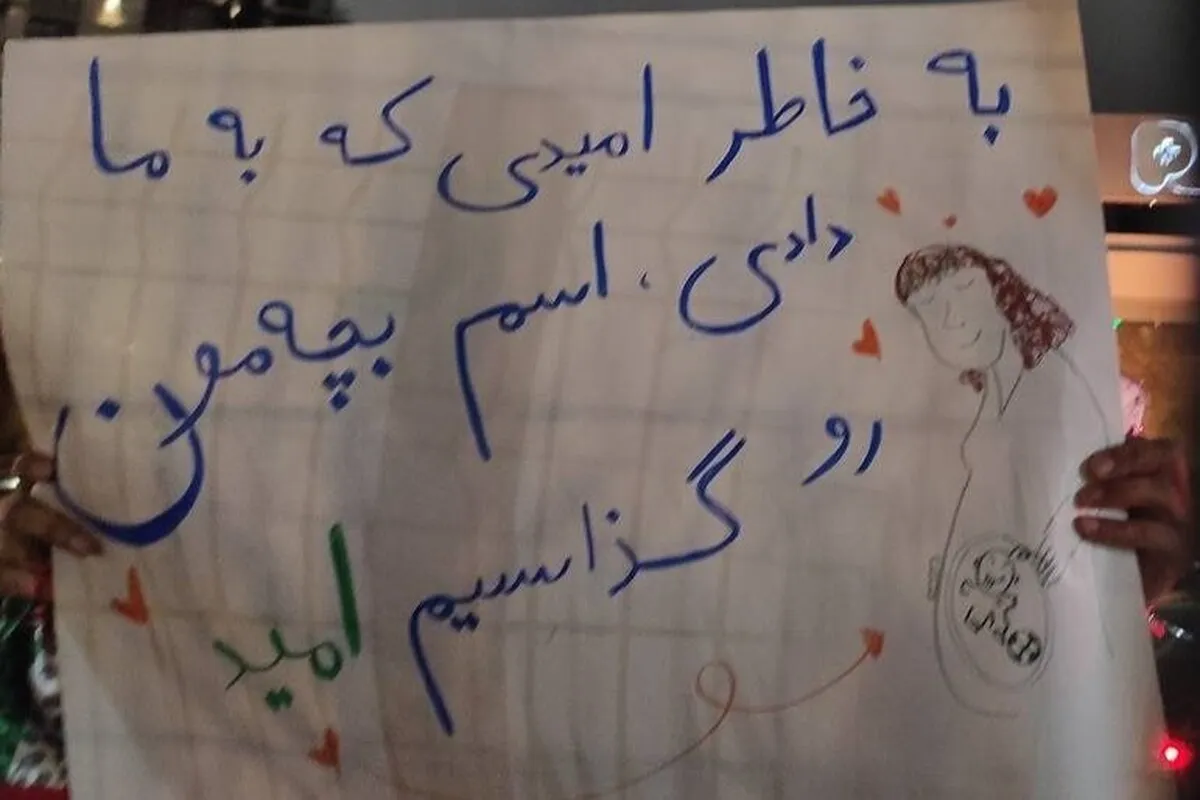 به خاطر امیدی که به ما
دادی، اسم بچه‌مون
رو گذاسیم
امید